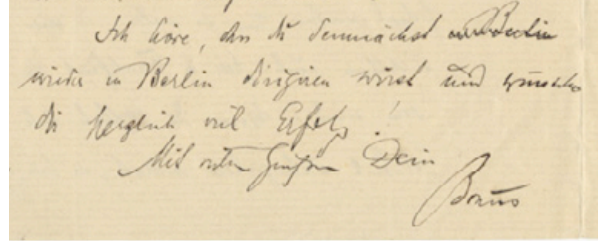 Ich höre, dass du demnächst
wieder in Berlin dirigieren wirst und wünsche
dir herzlich viel Erfolg!
Mit vielen Grüßen Dein
Bruno